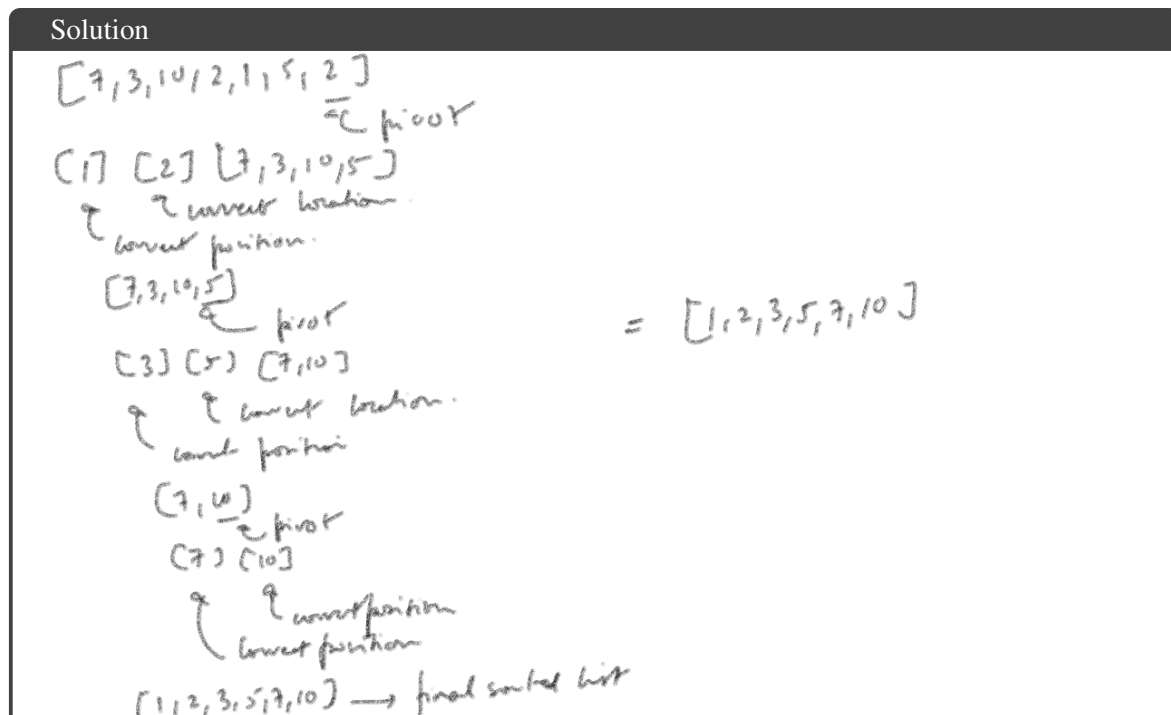 Solution
[7,3,10,2,1,5,2]
pivot
[1] [2] [7,3,10,5]
correct location.
correct position.
[7,3,10,5]
pivot
= [1,2,3,5,7,10]
[3] [5] [7,10]
correct location.
correct position
[7,10]
pivot
[7] [10]
correct position
correct position
[1,2,3,5,7,10] → final sorted list